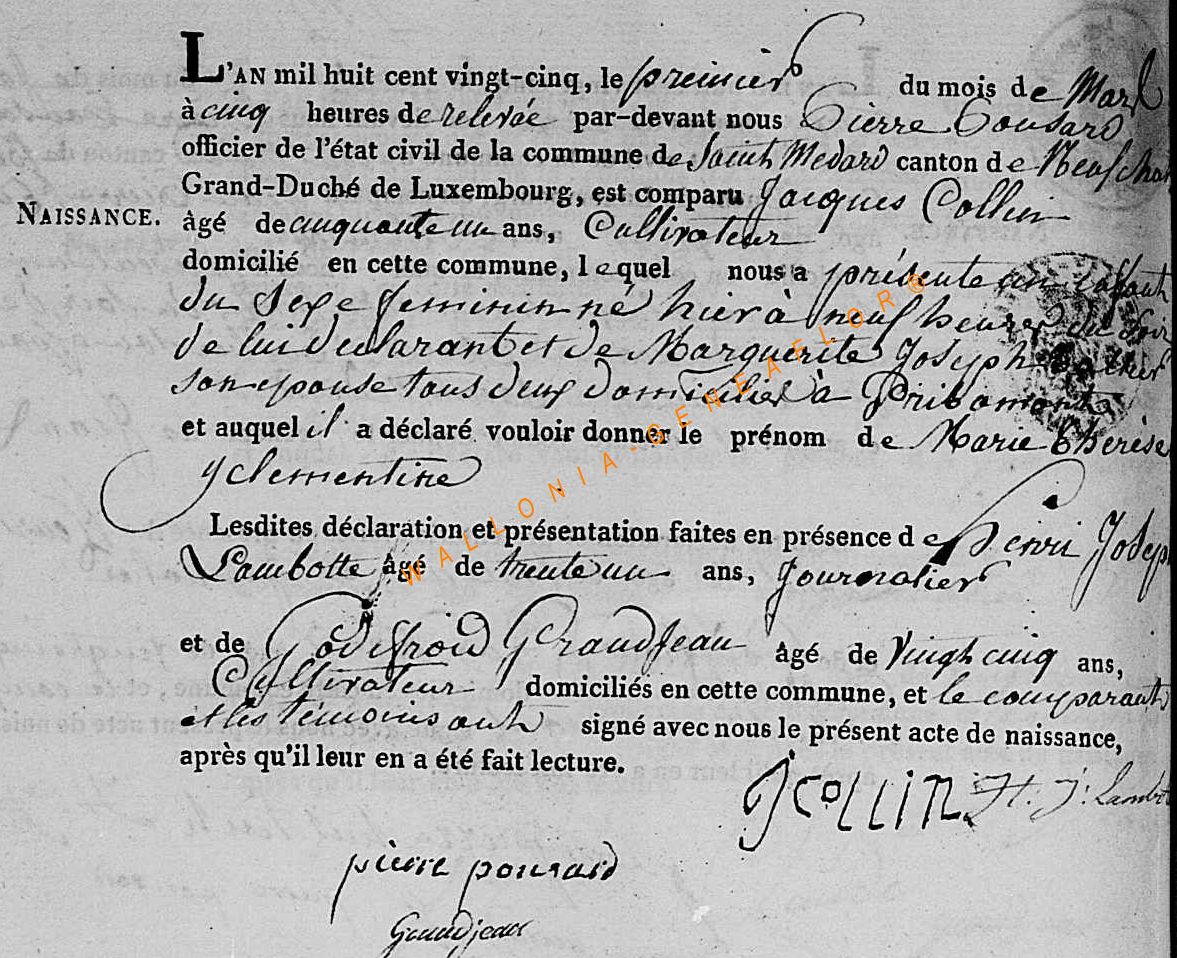 L'AN mil huit cent vingt-cinq, le premier du mois de Mars
à cinq heures de relevée par-devant nous Pierre Pousard
officier de l'état civil de la commune de Saint Medard canton de Neufchat
Grand-Duché de Luxembourg, est comparu Jacques Collin
NAISSANCE.
âgé de cinquante un ans, Cultivateur
domicilié en cette commune, lequel nous a présenté un enfant
du Sexe feminin né hier à neuf heures du soir
de lui declarant et de Marguerite Joseph
son epouse tous deux domicilies à Pribomont
et auquel il a déclaré vouloir donner le prénom de Marie Therèse
yclementine
Lesdites déclaration et présentation faites en présence de Henri Josep
Lambotte âgé de trente un ans, Journalier
et de Godefroid Grandjean âgé de vingt cinq ans,
Cultivateur domiciliés en cette commune, et le comparant
et les témoins ont signé avec nous le présent acte de naissance,
après qu'il leur en a été fait lecture.
J COLLIN H. J. Lambot
pierre pousard
Grandjean
WALLONIA-GENEALOR®